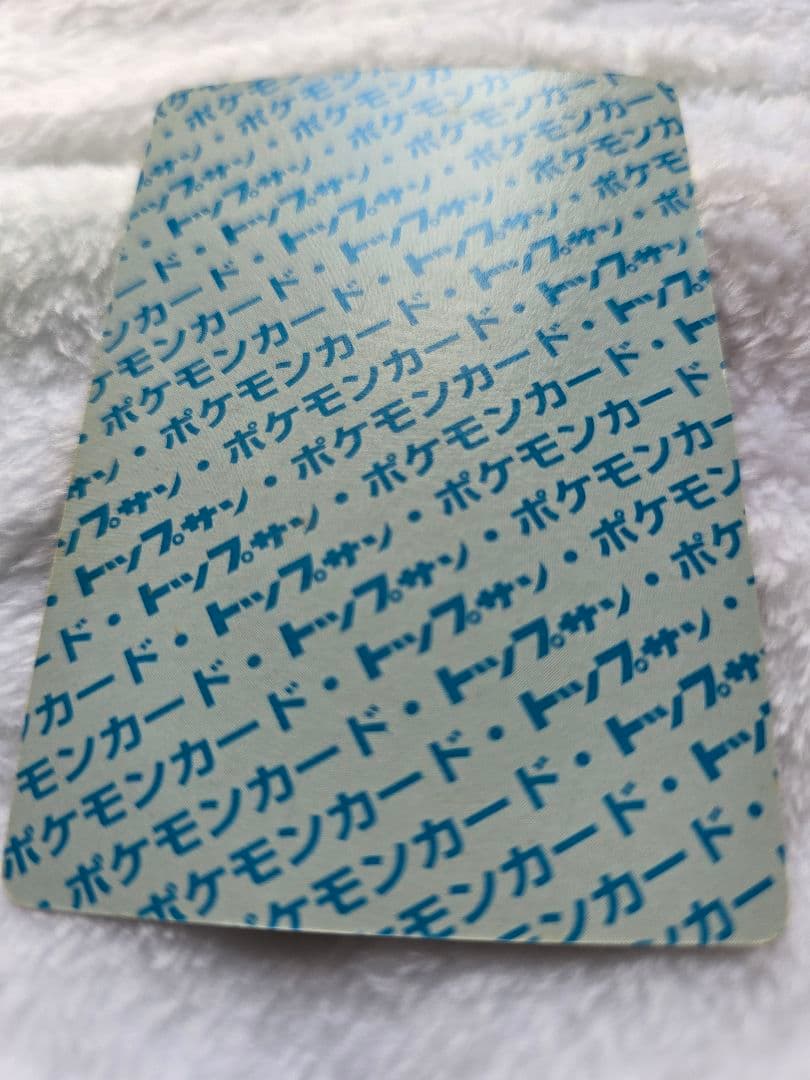 ポケモン
・ポケモンカ
サン・ポケモンカード
トップサン・ポケモンカ
・トップサン・ポケモンカ
ード・トップサン・ポケモン
ンカード・トップサン・ポケモ
ケモンカード・トップサン・ポケモ
・ポケモンカード・トップサン・ポケ
サン・ポケモンカード・トップサン・ポ
ップサン・ポケモンカード・トップサン
・トップサン・ポケモンカード・トップ
ード・トップサン・ポケモンカード・ト
ンカード・トップサン・ポケモンカード・
モンカード・トップサン・ポケモンカー
ポケモンカード・トップサン・ポケモン
・ポケモンカード・トップサン・ポケ
ポケモンカード・トップサン・
ケモンカード・トップサン
モンカード・トッ
ンカード・
カー